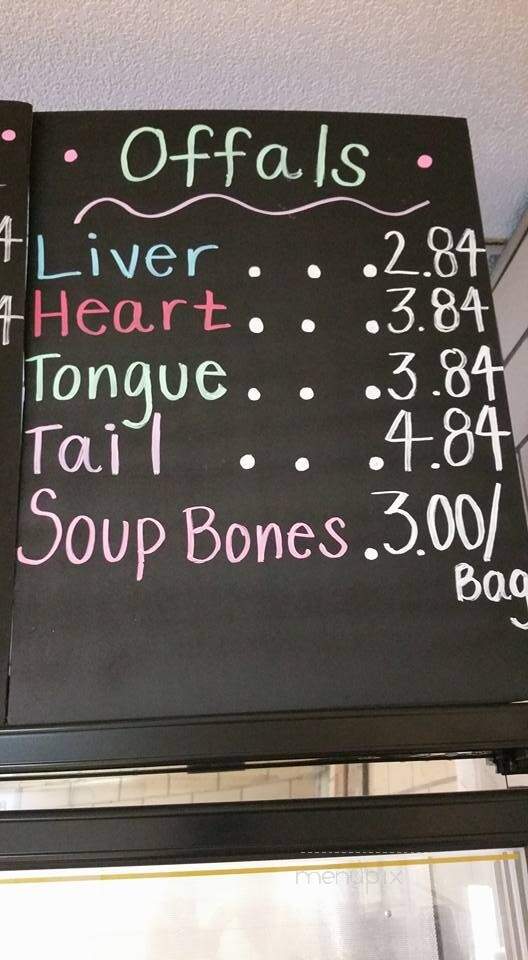 Offals
Liver . . . 2.84
Heart . . . 3.84
Tongue . . . 3.84
Tail . . . 4.84
Soup Bones . 3.00/
Bag
4
4
menupix